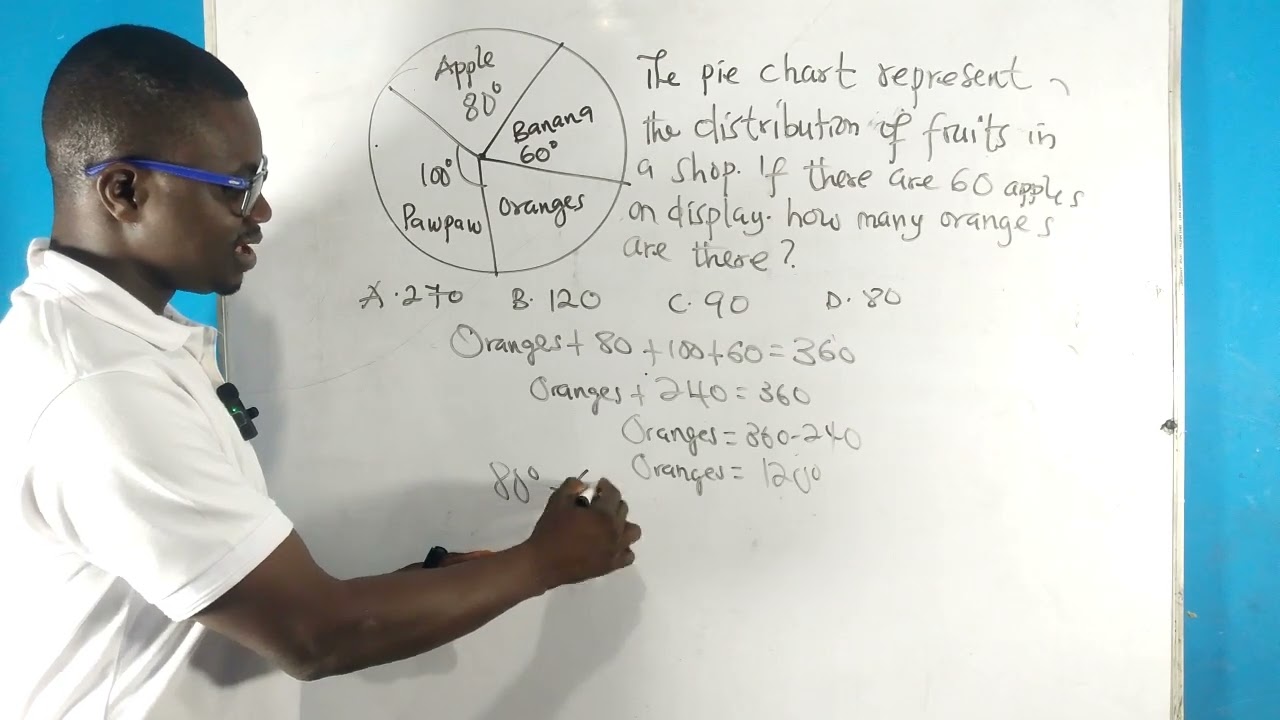 Apple
80°
Banana
60°
100°
Pawpaw
Oranges
The pie chart represent
the distribution of fruits in
a shop. If there are 60 apples
on display. how many oranges
are there?
A. 270 B. 120 C. 90 D. 80
Oranges + 80 + 100 + 60 = 360
Oranges + 240 = 360
Oranges = 360 - 240
Oranges = 120°
80° =